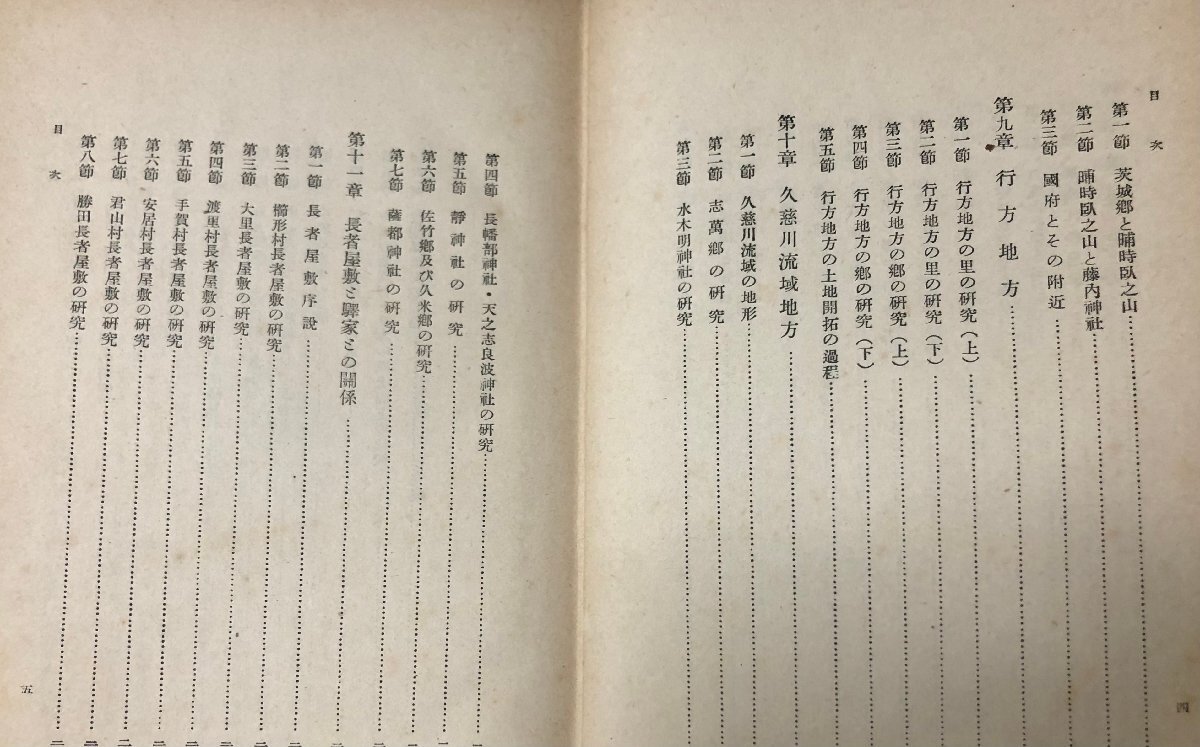 目次
第一節 茨城郷と晡時臥之山
第二節 晡時臥之山と藤内神社
第三節 國府とその附近
第九章 行方地方
第一節 行方地方の里の研究（上）
第二節 行方地方の里の研究（下）
第三節 行方地方の郷の研究（上）
第四節 行方地方の郷の研究（下）
第五節 行方地方の土地開拓の過程
第十章 久慈川流域地方
第一節 久慈川流域の地形
第二節 志萬郷の研究
第三節 水木明神社の研究
四
第四節 長幡部神社・天之志良波神社の研究
第五節 靜神社の研究
第六節 佐竹郷及び久米郷の研究
第七節 薩都神社の研究
第十一章 長者屋敷と驛家との關係
第一節 長者屋敷序説
第二節 櫛形村長者屋敷の研究
第三節 大里長者屋敷の研究
第四節 渡里村長者屋敷の研究
第五節 手賀村長者屋敷の研究
第六節 安居村長者屋敷の研究
第七節 君山村長者屋敷の研究
第八節 勝田長者屋敷の研究
目次
五